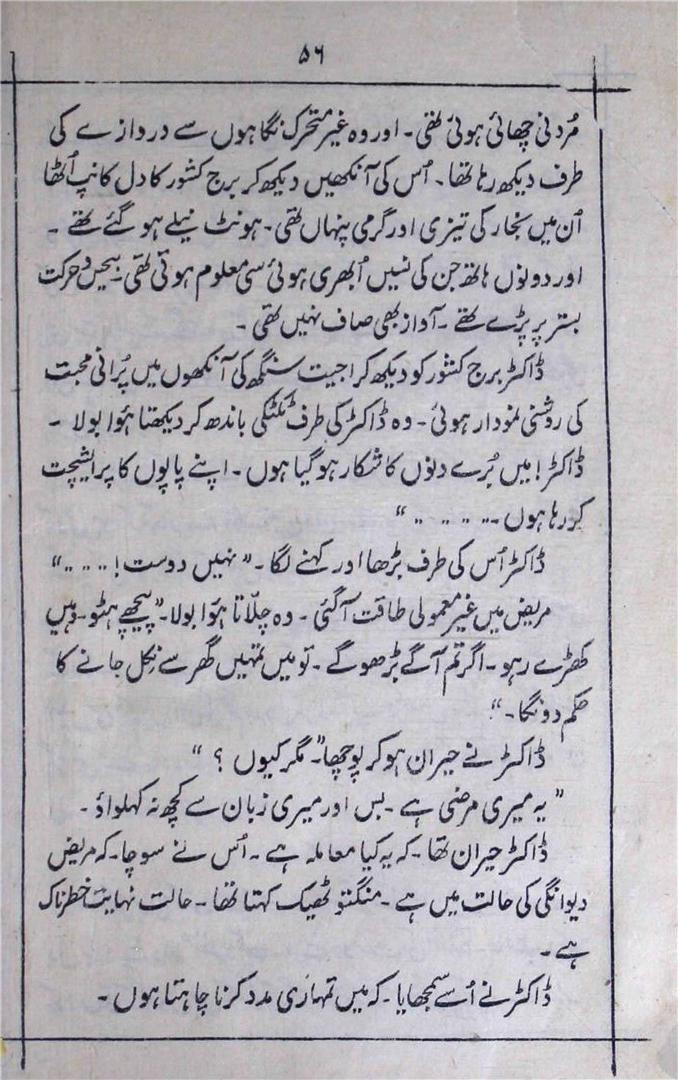 ۵۶
مُردنی چھائی ہوئی تھی۔ اور وہ غیر متحرک نگاہوں سے دروازے کی
طرف دیکھ رہا تھا۔ اُس کی آنکھیں دیکھ کر برج کشور کا دل کانپ اُٹھا
اُن میں بخار کی تیزی اور گرمی پنہاں تھی۔ ہونٹ نیلے ہو گئے تھے ۔
اور دونوں ہاتھ جن کی نسیں اُبھری ہوئی سی معلوم ہوتی تھی۔ بیحس و حرکت
بستر پر پڑے تھے ۔ آواز بھی صاف نہیں تھی ۔
ڈاکٹر برج کشور کو دیکھ کر اجیت سنگھ کی آنکھوں میں پُرانی محبت
کی روشنی نمودار ہوئی ۔ وہ ڈاکٹر کی طرف ٹکٹکی باندھ کر دیکھتا ہُوا بولا ۔
ڈاکٹر! میں بُرے دنوں کا شکار ہو گیا ہوں ۔ اپنے پاپوں کا پرایشچت
کر رہا ہوں ۔ . . . . . “
ڈاکٹر اُس کی طرف بڑھا اور کہنے لگا ۔ ” نہیں دوست ! . . . . “
مریض میں غیر معمولی طاقت آ گئی ۔ وہ چلّاتا ہُوا بولا۔ ” پیچھے ہٹو۔ وہیں
کھڑے رہو ۔ اگر تم آگے بڑھو گے ۔ تو میں تمہیں گھر سے نِکل جانے کا
حکم دونگا ۔ “
ڈاکٹر نے حیران ہو کر پوچھا ” ۔ مگر کیوں ؟ “
” یہ میری مرضی ہے ۔ بس اور میری زبان سے کچھ نہ کہلواؤ ۔
ڈاکٹر حیران تھا ۔ کہ یہ کیا معاملہ ہے ۔ اُس نے سوچا ۔ کہ مریض
دیوانگی کی حالت میں ہے ۔ منگتو ٹھیک کہتا تھا ۔ حالت نہایت خطرناک
ہے ۔
ڈاکٹر نے اُسے سمجھایا ۔ کہ میں تمہاری مدد کرنا چاہتا ہوں ۔